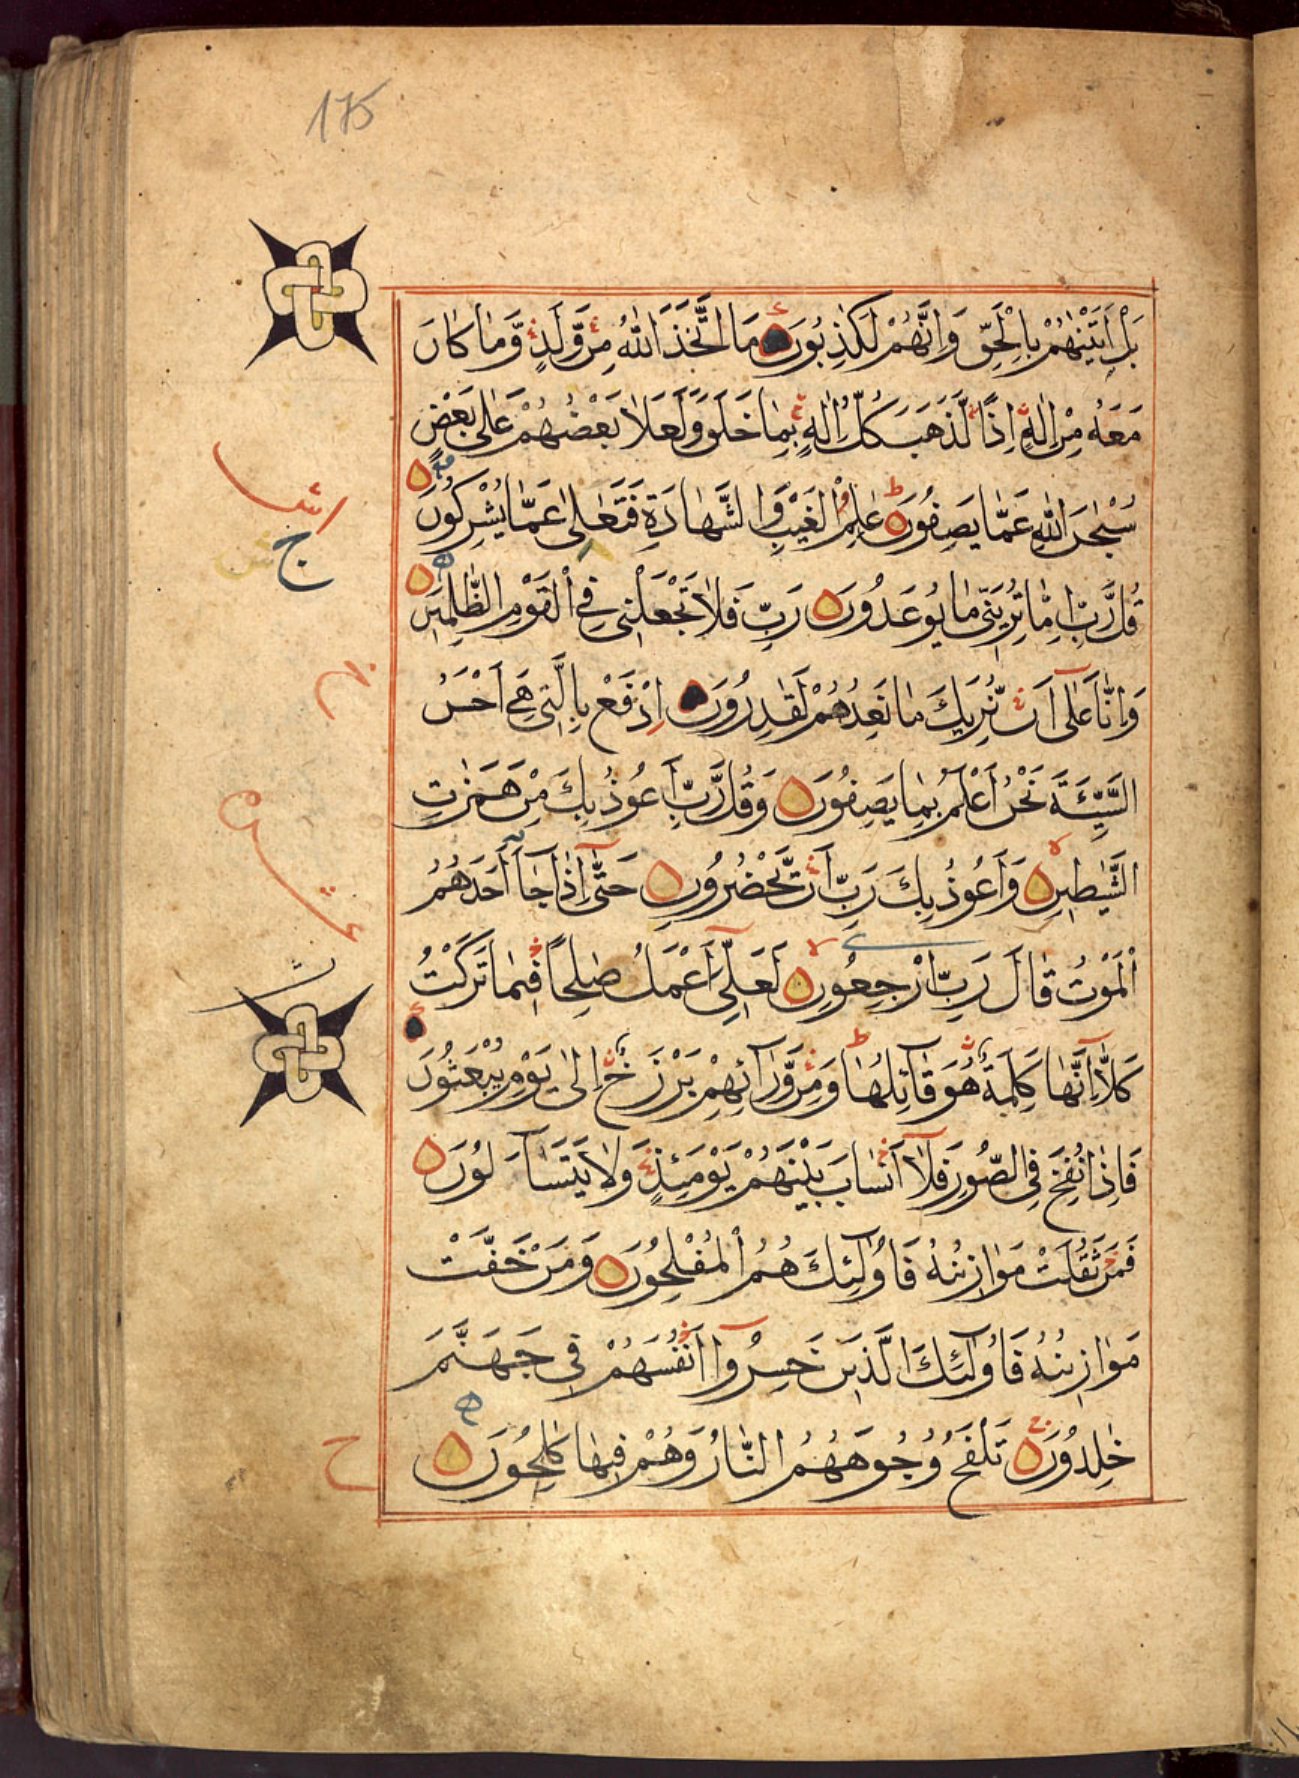 175
بَلْ اَتَيْنٰهُمْ بِالْحَقِّ وَاِنَّهُمْ لَكٰذِبُونَ مَا اتَّخَذَ اللّٰهُ مِنْ وَّلَدٍ وَّمَا كَانَ
مَعَهُ مِنْ اِلٰهٍ اِذًا لَّذَهَبَ كُلُّ اِلٰهٍ بِمَا خَلَقَ وَلَعَلَا بَعْضُهُمْ عَلٰى بَعْضٍ
سُبْحٰنَ اللّٰهِ عَمَّا يَصِفُونَ عٰلِمِ الْغَيْبِ وَالشَّهَادَةِ فَتَعٰلٰى عَمَّا يُشْرِكُونَ
قُلْ رَّبِّ اِمَّا تُرِيَنِّى مَا يُوعَدُونَ رَبِّ فَلَا تَجْعَلْنِى فِى الْقَوْمِ الظّٰلِمِينَ
وَاِنَّا عَلٰٓى اَنْ نُّرِيَكَ مَا نَعِدُهُمْ لَقٰدِرُونَ اِدْفَعْ بِالَّتِى هِىَ اَحْسَنُ
السَّيِّئَةَ نَحْنُ اَعْلَمُ بِمَا يَصِفُونَ وَقُلْ رَّبِّ اَعُوذُ بِكَ مِنْ هَمَزٰتِ
الشَّيٰطِينِ وَاَعُوذُ بِكَ رَبِّ اَنْ يَّحْضُرُونِ حَتّٰٓى اِذَا جَآءَ اَحَدَهُمُ
الْمَوْتُ قَالَ رَبِّ ارْجِعُونِ لَعَلِّىٓ اَعْمَلُ صٰلِحًا فِيمَا تَرَكْتُ
كَلَّا اِنَّهَا كَلِمَةٌ هُوَ قَآئِلُهَا وَمِنْ وَّرَآئِهِمْ بَرْزَخٌ اِلٰى يَوْمِ يُبْعَثُونَ
فَاِذَا نُفِخَ فِى الصُّورِ فَلَآ اَنْسَابَ بَيْنَهُمْ يَوْمَئِذٍ وَلَا يَتَسَآءَلُونَ
فَمَنْ ثَقُلَتْ مَوَازِينُهُ فَاُولٰٓئِكَ هُمُ الْمُفْلِحُونَ وَمَنْ خَفَّتْ
مَوَازِينُهُ فَاُولٰٓئِكَ الَّذِينَ خَسِرُوٓا اَنْفُسَهُمْ فِى جَهَنَّمَ
خٰلِدُونَ تَلْفَحُ وُجُوهَهُمُ النَّارُ وَهُمْ فِيهَا كٰلِحُونَ